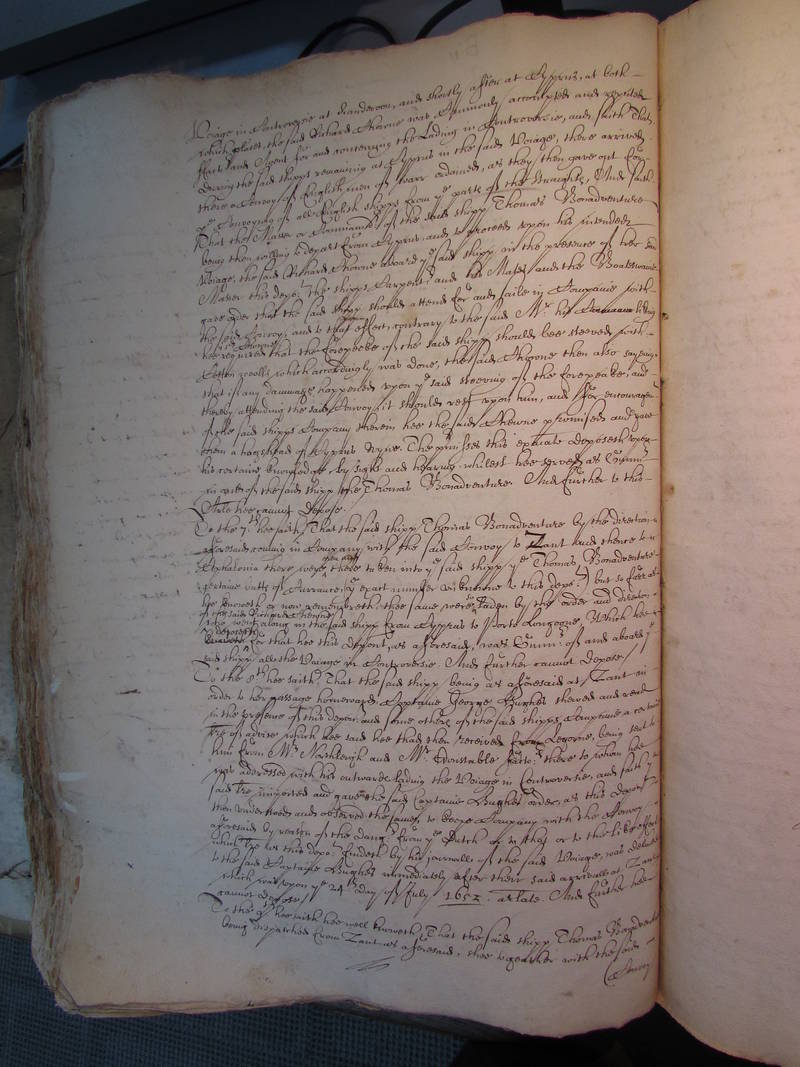 Voiage in Controversie at Scanderoon, and shortly after at Cyprus, at both
which places, the said Richard Thorne was Commonly accompted and reputed
Agent for and concerning the Lading in Controversie, and saith That
During the said shipps remaining at Cyprus in the said Voiage, there arrived
there a Convoy of English men of warr ordained, as they then gave out for
ye Convoying of all English shipps from ye parts of the Straights, And saith
That the Master or Commander of the said shipp Thomas Bonadventure
being then willing to depart from Cyprus, and to proceed upon his intended
Voiage, the said Richard Thorne aboard ye said shipp in the presence of her said
Master this depot the shipps Carpenter and his Mates and the Boatswaine
gave order that the said shipp should attend for and saile in Companie with
the said Convoy, and to that effect, contrary to the said Mr his liking
hee required that the forepeeke of the said shipp should bee steeved with
Cotton wooll which accordingly was done, the said Thorne then also saying
that if any dammage happened upon ye said steeving of the forepeake, and
thereby attending the said Convoy it should rest upon him, and for encouragement
of the said shipps Company therein hee the said Thorne promised and gave
them a hogshead of Cyprus Wyne. The premisses this exaiate deposeth upon
his certaine knowledge by sight and hearing whilest hee served as Gunner
in and of the said shipp the Thomas Bonadventure. And further to this
Arle hee cannot depose.
To the 7th hee saith, That the said shipp Thomas Bonadventure by the direction
aforesaid coming in Company with the said Convoy to Zant and thence to
Cephalonia there were then and there taken into ye said shipp ye Thomas Bonadventure
certaine butts of Currance, (ye exact number unknowne to this depot) but so farr as
hee knoweth or now remembreth, the same were laden by the order and direction
of the said Richard Thorne
who went along in the said shipp from Cyprus to Porto Longone, Which hee
deposeth for that hee this Deponent, as aforesaid, was Gunner of and aboard ye
said shipp all the Voiage in Controversie. And further cannot depose/
To the 8th hee saith, That the said shipp being as aforesaid at Zant in
order to her passage homewards, Captaine George Hughes shewed and read
in the presence of this deponent and some others of the said shipps Companie a certaine
tre of advise which hee said hee had then received from Legorne, being sent to
him from Mr Northleigh and Mr Constable factors there to whom hee
was addressed with his outward lading the Voiage in Controversie, and saith ye
said tre imported and gave the said Captaine Hughes order, as this deponent
then understood and observed the same, to keepe Company with the Convoy
aforesaid by reason of the danger from ye Dutch or to that or to the like effect
which tre as this depot findeth by his journall of the said Voiage, was delivered
to the said Captaine Hughes immediately after their said arrivall at Zant
which was upon ye 24th day of July 1652. arlate. And further hee
cannot depose/
To the 9th hee saith hee well knoweth, That the said shipp Thomas Bonadventure
being dispatched from Zant as aforesaid, shee together with the said
Convoy